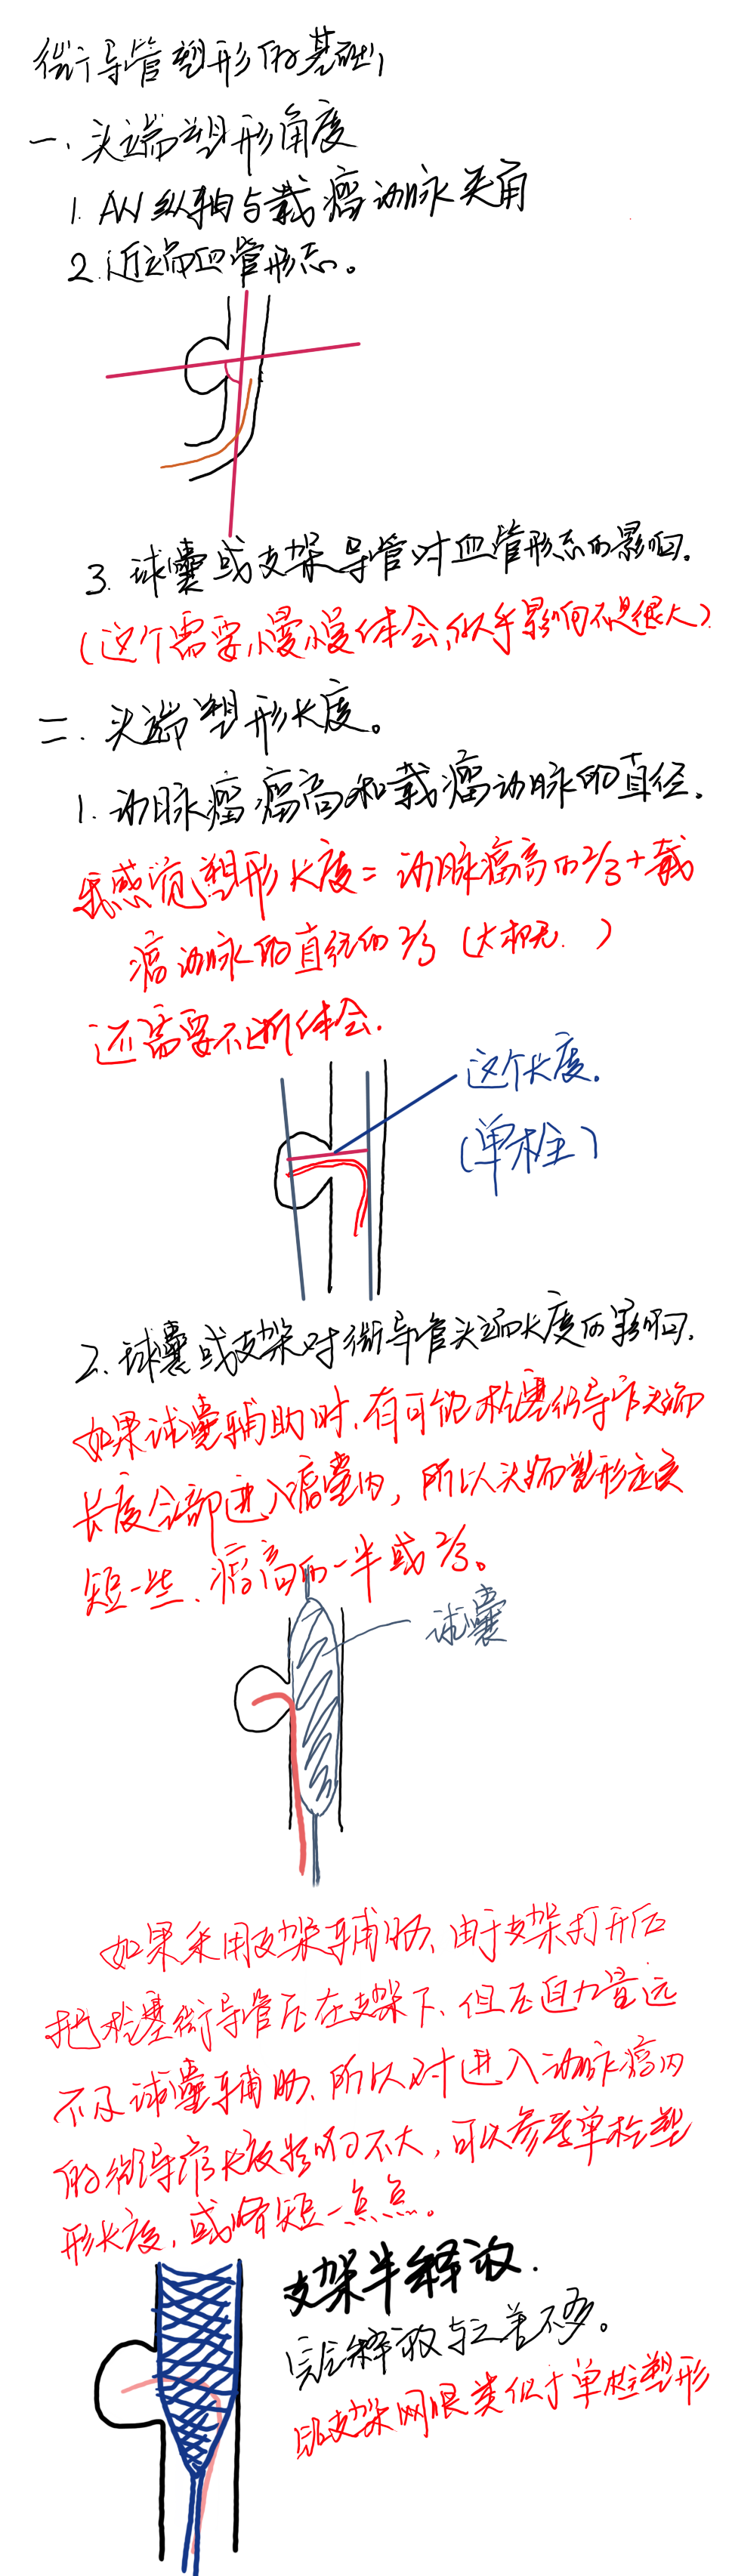 微导管塑形的基础
一.头端塑形角度
1.AN纵轴与载瘤动脉夹角
2.近端血管形态。
3.球囊或支架导管对血管形态的影响.
(这个需要慢慢体会,似乎影响不是很大)
二.头端塑形长度。
1.动脉瘤瘤高和载瘤动脉的直径.
我感觉塑形长度=动脉瘤高的2/3+载
瘤动脉的直径的2/3(大概.)
还需要不断体会.
这个长度.
(单栓)
2.球囊或支架对微导管头端长度的影响.
如果球囊辅助时,有可能栓塞微导管头端
长度全部进入瘤囊内,所以头端塑形应该
短一些、瘤高的一半或2/3。
球囊
如果采用支架辅助、由于支架打开后
把栓塞微导管压在支架下、但压迫力量远
不及球囊辅助、所以对进入动脉瘤内
的微导管长度影响不大,可以参考单栓塑
形长度,或略短一点点。
支架半释放.
完全释放与之差不多。
支架网眼类似于单栓塑形